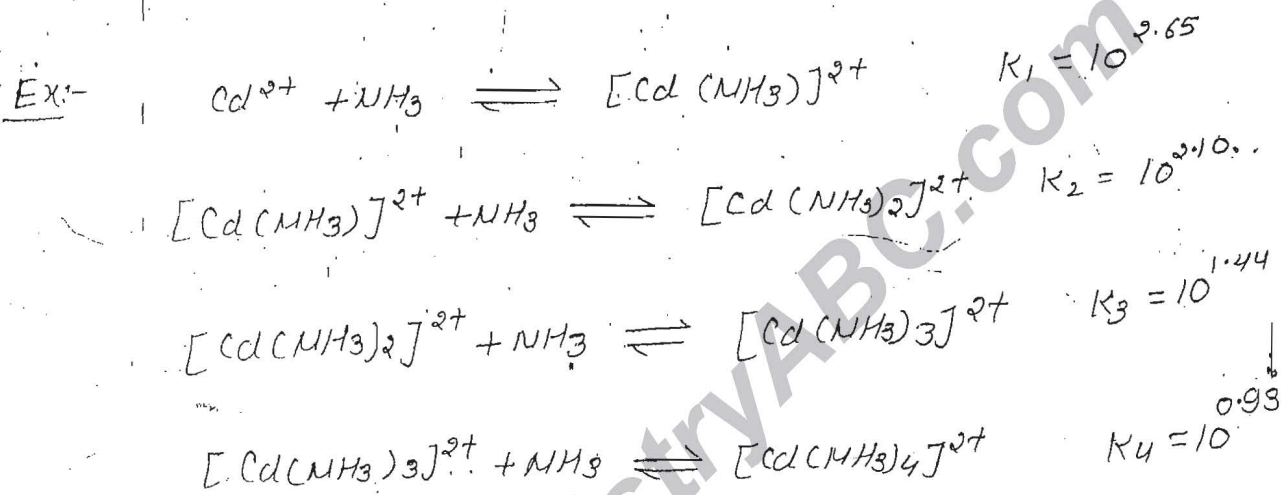 Ex:- Cd²⁺ + NH₃ ⇌ [Cd (NH₃)]²⁺ K₁ = 10^2.65
[Cd (NH₃)]²⁺ + NH₃ ⇌ [Cd (NH₃)₂]²⁺ K₂ = 10^2.10
[Cd (NH₃)₂]²⁺ + NH₃ ⇌ [Cd (NH₃)₃]²⁺ K₃ = 10^1.44
↓
[Cd(NH₃)₃]²⁺ + NH₃ ⇌ [Cd(NH₃)₄]²⁺ K₄ = 10^0.93
stryABC.com